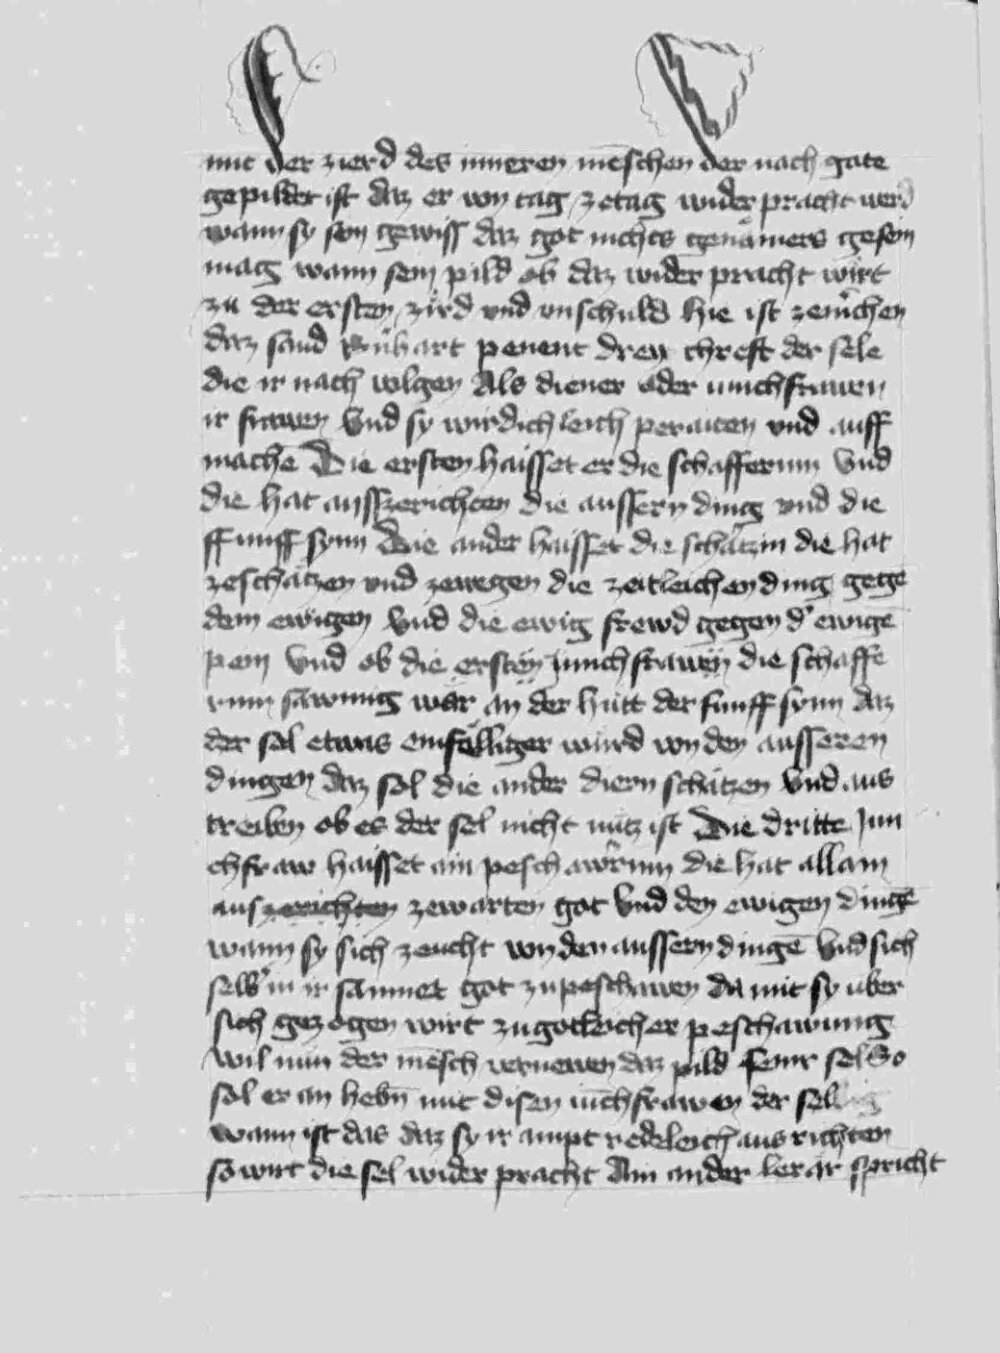 mit der zierd des inneren menschen der nach gote
gepildet ist daz er von tag zetag wider pracht werd
wann sy sein gewiss daz got nichts genämers gesein
mag wann sein pild ob daz wider pracht wirt
zu der ersten zird und unschuld hie ist zemerchen
daz sand penent drey chreft der sele
die ir nach volgen Als diener oder iunchfrawen
ir frawen Vnd sy wirdichleich peraiten vnd auff
mache Die ersten haisset er die schafferinn Vnd
die hat ausszerichten die aussern ding vnd die
ffunff synn Die ander haisset die schätzin die hat
zeschätzen vnd zewegen die zeitleichen ding gege
dem ewigen Vnd die ewig frewd gegen d' ewigē
pein Vnd ob die ersten iunchfrawen die schaffe
rinn sawmig wär an der hutt der funff synn daz
der sel etwas einfelliger wurd von den ausseren
dingen daz sol die ander diern schätzen Vnd aus
treiben ob es der sel nicht nutz ist Die dritte Jun
chfraw haisset ain peschawerinn die hat allain
aus zerichten zewarten got Vnd den ewigen dingē
wann sy sich zeucht von den aussern dingē Vnd sich
selb' in ir sammet got zu peschawen da mit sy uber
sich gezogen wirt zu gotleicher peschawung
wil nun der mēsch vernewen daz pild seinr sel So
sol er an hebn mit disen iūchfrawen der sel
wann ist das daz sy ir ampt redeleich aus richten
so wirt die sel wider pracht Ain ander lerär spricht